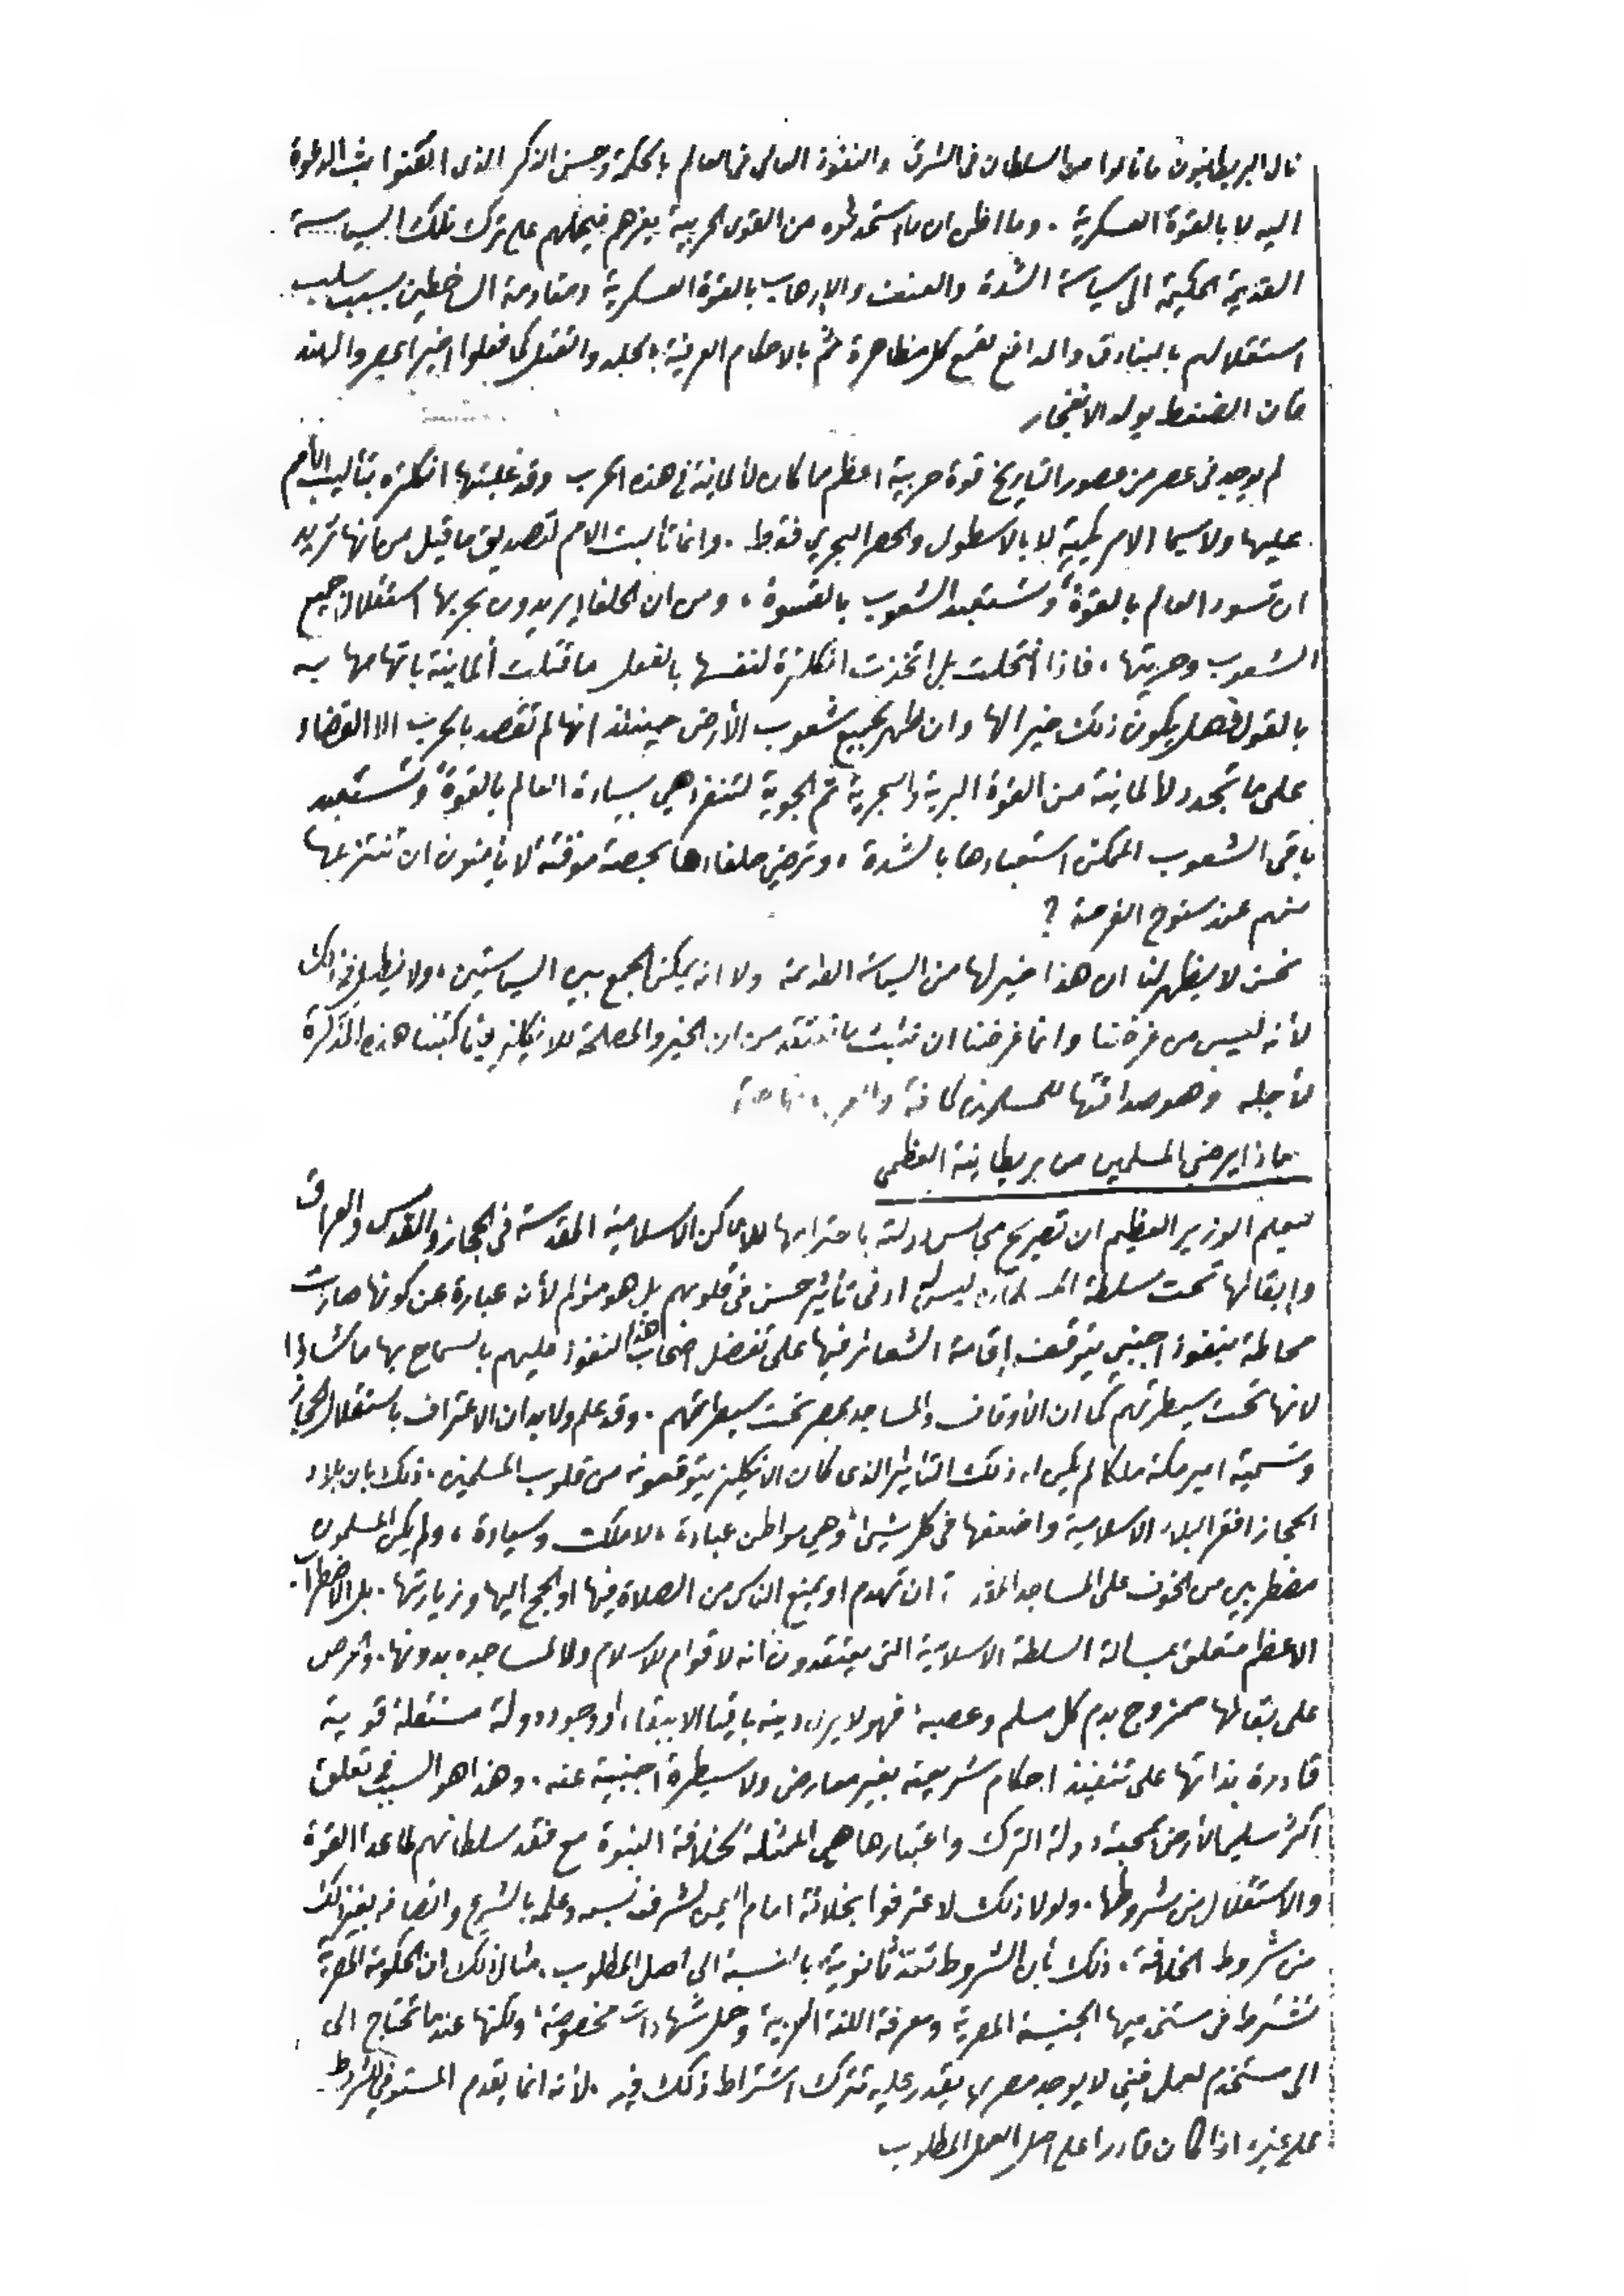 نال البريطانيون ما نالوا من السلطان في الشرق والنفوذ العالي في العالم بالحكمة وحسن الذكر الذي اتقنوا بث الدعوة
اليه لا بالقوة العسكرية . وما اظن ان ما استحدثوه من القوى الحربية يغرهم فيحملهم على ترك تلك السياسة
القديمة الحكيمة الى سياسة الشدة والعنف والإرهاب بالقوة العسكرية ومقاومة الساخطين بسبب سلب
استقلالهم بالبنادق والمدافع لقمع كل مظاهرة ثم بالاحكام العرفية بالجلد والقتل كما فعلوا اخيرا بمصر والهند
فان الضغط يولد الانفجار
لم يوجد في عصر من عصور التاريخ قوة حربية اعظم ما كان لألمانية في هذه الحرب وقد غلبتها انكلترة بتأليب الأمم
عليها ولا سيما الامريكية لا بالاسطول والحصر البحري فقط . وانما تألبت الامم لتصديق ما قيل من أنها تريد
ان تسود العالم بالقوة وتستعبد الشعوب بالقسوة ، ومن ان الحلفاء يريدون بحربها استقلال جميع
الشعوب وحريتها ، فاذا انتحلت بل اتخذت انكلترة لنفسها بالفعل ما قتلت ألمانية باتهامها به
بالقول فهل يكون ذلك خيرا لها وان ظهر لجميع شعوب الأرض حينئذ انها لم تقصد بالحرب الا القضاء
على ما تجدد لألمانية من القوة البرية والبحرية ثم الجوية لتنفرد هي بسيادة العالم بالقوة وتستعبد
باقي الشعوب الممكن استعبادها بالشدة ، وترضي حلفاءها بحصة موقتة لا يأمنون ان تنتزعها
منهم عند سنوح الفرصة ؟
نحن لا يظهر لنا ان هذا خير لها من السياسة القديمة ولا انه يمكن الجمع بين السياستين ، ولا نطيل في ذلك
لأنه ليس من غرضنا وانما غرضنا ان نثبت ما نعتقد من ان الخير والمصلحة للانكليز فيما كتبنا هذه المذكرة
لأجله وهو صداقتها للمسلمين كافة والعرب خاصة
ماذا يرضي المسلمين من بريطانية العظمى
ليعلم الوزير العظيم ان تصريح مجالس دولته باحترامها للاماكن الاسلامية المقدسة في الحجاز والقدس والعراق
وإبقائها تحت سلطة المسلمين ليس له ادنى تأثير حسن في قلوبهم بل هو مؤلم لأنه عبارة عن كونها صارت
محاطة بنفوذ اجنبي يتوقف إقامة الشعائر فيها على تفضل اصحاب هذا النفوذ عليهم بالسماح بها ما شاؤا
لانها تحت سيطرتهم كما ان الأوقاف والمساجد بمصر تحت سيطرتهم . وقد علم ولا بد ان الاعتراف باستقلال الحجاز
وتسمية امير مكة ملكا لم يكن له ذلك التأثير الذي كان الانكليز يتوقعونه من قلوب المسلمين . ذلك بان بلاد
الحجاز افقر البلاد الاسلامية واضعفها في كل شيء وهي مواطن عبادة ، لا ملك وسيادة ، ولم يكن المسلمون
مضطربين من الخوف على المساجد ان تهدم او يمنع الناس من الصلاة فيها او الحج اليها وزيارتها . بل الاضطراب
الاعظم متعلق بمسألة السلطة الاسلامية التي يعتقدون انه لا قوام للاسلام ولا لمساجده بدونها . والحرص
على بقائها ممزوج بدم كل مسلم وعصبه فهو لا يرى دينه باقيا الا ببقاء او وجود دولة مستقلة قوية
قادرة بذاتها على تنفيذ احكام شريعته بغير معارض ولا سيطرة اجنبية عنه . وهذا هو السبب في تعلق
اكثر مسلمي الأرض بمحبة دولة الترك واعتبارها هي الممثلة لخلافة النبوة مع فقد سلطانهم لما عدا القوة
والاستقلال من شروطها . ولولا ذلك لاعترفوا بخلافة امام اليمن لشرف نسبه وعلمه بالشرع واتصافه بغير ذلك
من شروط الخلافة ، ذلك بأن الشروط تعد ثانوية بالنسبة الى أصل المطلوب . مثال ذلك ان الحكومة المصرية
تشترط في مستخدميها الجنسية المصرية ومعرفة اللغة العربية وحمل شهادات مخصوصة ولكنها عندما تحتاج الى
الى مستخدم لعمل فني لا يوجد مصري يقدر عليه تترك اشتراط ذلك فيه . لأنه انما يقدم المستوفي للشروط
على غيره اذا كان قادرا على اصل العمل المطلوب